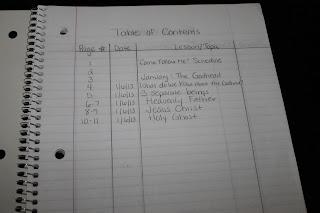 Table of Contents
Page # Date Lesson/Topic
1 Come Follow Me: Schedule
2
3 January: The Godhead
4 1/6/13 What do we know about the Godhead?
5 1/6/13 3 separate beings
6-7 1/6/13 Heavenly Father
8-9 1/6/13 Jesus Christ
10-11 1/6/13 Holy Ghost